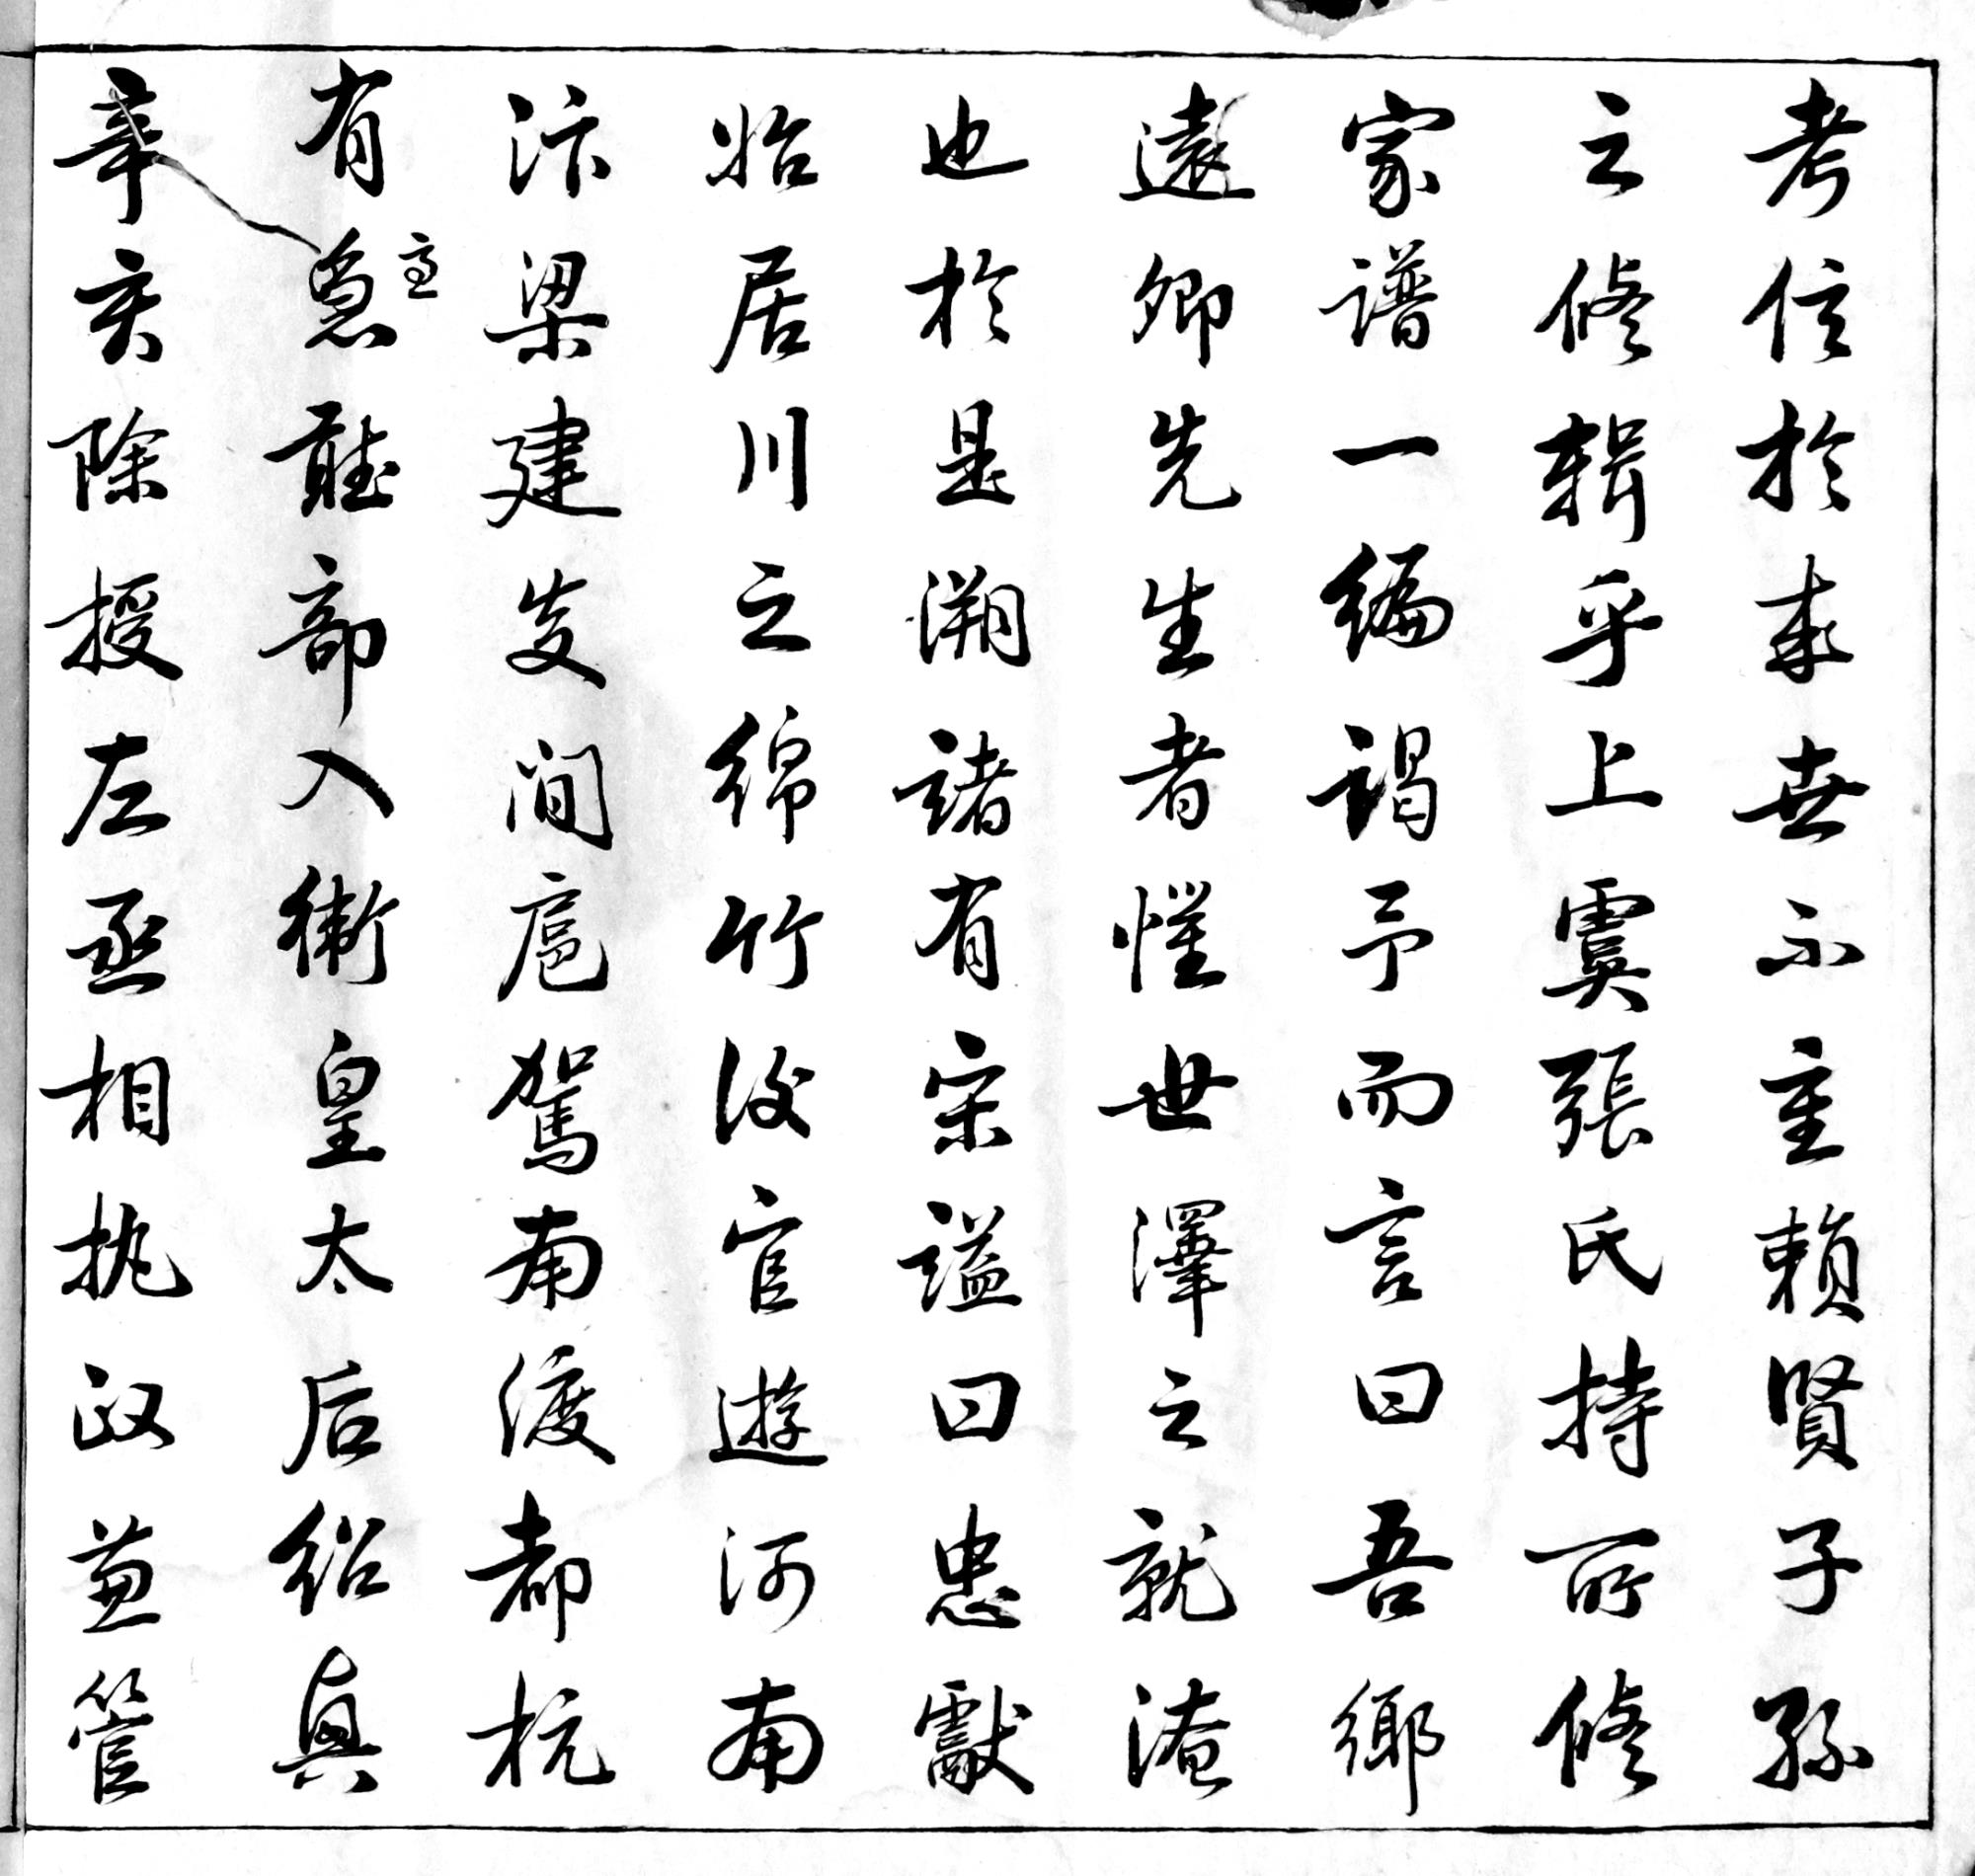 考信於來世不重賴賢子孫
之修輯乎上虞張氏持所修
家譜一編謁予而言曰吾鄉
遠卿先生者懼世澤之就淹
也於是溯諸有宋謚曰忠獻
始居川之綿竹後官遊河南
汴梁建炎間扈駕南渡都杭
有急部入衛皇太后紹興
辛亥除授左丞相執政兼管